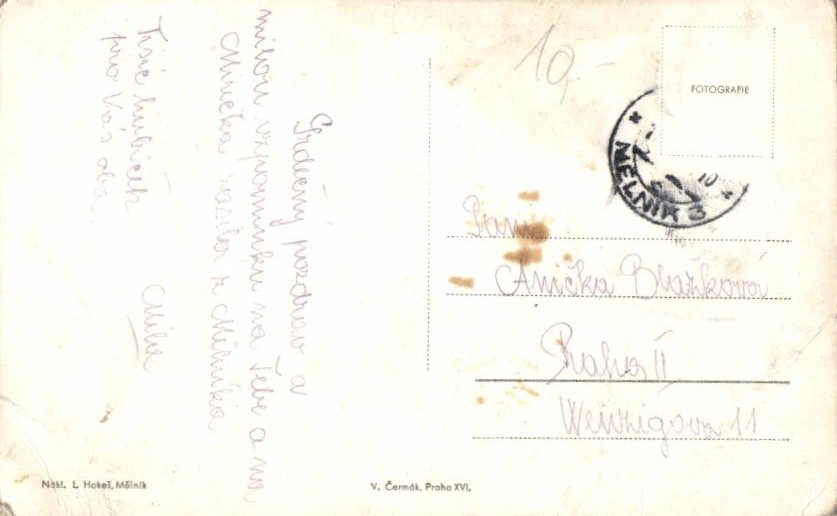 Srdečný pozdrav a
milou vzpomínku na Tebe a na
zasílá z Mělníka
Tisíc hubiček
pro Vás oba.
10,-
FOTOGRAFIE
MĚLNÍK 3
Paní
Anička Blažková
Praha II
Wenzigova 11
Nákl. L. Hokeš, Mělník
V. Čermák, Praha XVI.